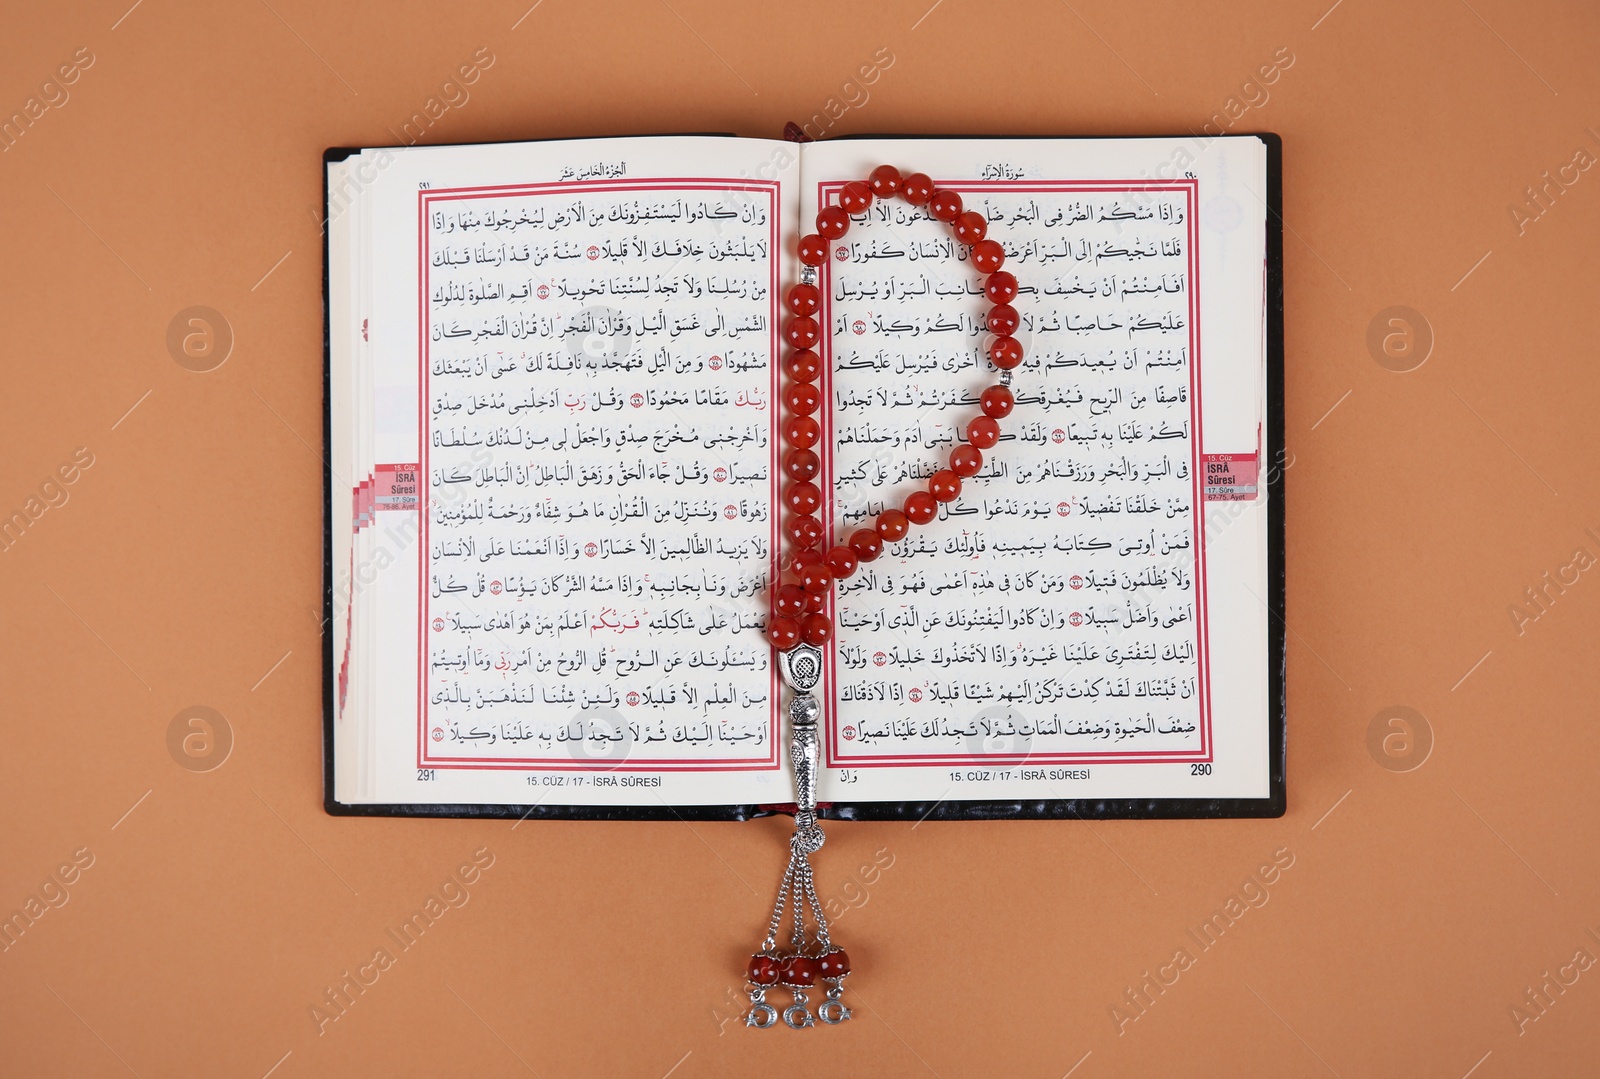 ٢٩٠
سُورَةُ الْاِسْرَاءِ
وَاِذَا مَسَّكُمُ الضُّرُّ فِى الْبَحْرِ ضَلَّ اِلَّا
فَلَمَّا نَجّٰيكُمْ اِلَى الْبَرِّ الْاِنْسَانُ كَفُورًا ﴿٦٧﴾
اَفَاَمِنْتُمْ اَنْ يَخْسِفَ جَانِبَ الْبَرِّ اَوْ يُرْسِلَ
عَلَيْكُمْ حَاصِبًا ثُمَّ لَا لَكُمْ وَكِيلًا ﴿٦٨﴾ اَمْ
اَمِنْتُمْ اَنْ يُعِيدَكُمْ فِيهِ اُخْرٰى فَيُرْسِلَ عَلَيْكُمْ
قَاصِفًا مِنَ الرِّيحِ كَفَرْتُمْ ثُمَّ لَا تَجِدُوا
لَكُمْ عَلَيْنَا بِهِ تَبِيعًا ﴿٦٩﴾ وَلَقَدْ بَنِى اٰدَمَ وَحَمَلْنَاهُمْ
فِى الْبَرِّ وَالْبَحْرِ وَرَزَقْنَاهُمْ مِنَ وَفَضَّلْنَاهُمْ عَلٰى كَثِيرٍ
مِمَّنْ خَلَقْنَا تَفْضِيلًا ﴿٧٠﴾ يَوْمَ نَدْعُوا كُلَّ
فَمَنْ اُوتِىَ كِتَابَهُ بِيَمِينِهِ فَاُولٰئِكَ يَقْرَؤُنَ
وَلَا يُظْلَمُونَ فَتِيلًا ﴿٧١﴾ وَمَنْ كَانَ فِى هٰذِهِ اَعْمٰى فَهُوَ فِى الْاٰخِرَةِ
اَعْمٰى وَاَضَلُّ سَبِيلًا ﴿٧٢﴾ وَاِنْ كَادُوا لَيَفْتِنُونَكَ عَنِ الَّذِى اَوْحَيْنَا
اِلَيْكَ لِتَفْتَرِىَ عَلَيْنَا غَيْرَهُ وَاِذًا لَاتَّخَذُوكَ خَلِيلًا ﴿٧٣﴾ وَلَوْلَا
اَنْ ثَبَّتْنَاكَ لَقَدْ كِدْتَ تَرْكَنُ اِلَيْهِمْ شَيْئًا قَلِيلًا ﴿٧٤﴾ اِذًا لَاَذَقْنَاكَ
ضِعْفَ الْحَيٰوةِ وَضِعْفَ الْمَمَاتِ ثُمَّ لَا تَجِدُ لَكَ عَلَيْنَا نَصِيرًا ﴿٧٥﴾
15. Cüz
İSRÂ
Sûresi
17. Sûre
67-75. Âyet
290
15. CÜZ / 17 - İSRÂ SÛRESİ
وَاِنْ
اَلْجُزْءُ الْخَامِسَ عَشَرَ
٢٩١
وَاِنْ كَادُوا لَيَسْتَفِزُّونَكَ مِنَ الْاَرْضِ لِيُخْرِجُوكَ مِنْهَا وَاِذًا
لَا يَلْبَثُونَ خِلَافَكَ اِلَّا قَلِيلًا ﴿٧٦﴾ سُنَّةَ مَنْ قَدْ اَرْسَلْنَا قَبْلَكَ
مِنْ رُسُلِنَا وَلَا تَجِدُ لِسُنَّتِنَا تَحْوِيلًا ﴿٧٧﴾ اَقِمِ الصَّلٰوةَ لِدُلُوكِ
الشَّمْسِ اِلٰى غَسَقِ الَّيْلِ وَقُرْاٰنَ الْفَجْرِ اِنَّ قُرْاٰنَ الْفَجْرِ كَانَ
مَشْهُودًا ﴿٧٨﴾ وَمِنَ الَّيْلِ فَتَهَجَّدْ بِهِ نَافِلَةً لَكَ عَسٰى اَنْ يَبْعَثَكَ
رَبُّكَ مَقَامًا مَحْمُودًا ﴿٧٩﴾ وَقُلْ رَبِّ اَدْخِلْنِى مُدْخَلَ صِدْقٍ
وَاَخْرِجْنِى مُخْرَجَ صِدْقٍ وَاجْعَلْ لِى مِنْ لَدُنْكَ سُلْطَانًا
نَصِيرًا ﴿٨٠﴾ وَقُلْ جَاءَ الْحَقُّ وَزَهَقَ الْبَاطِلُ اِنَّ الْبَاطِلَ كَانَ
زَهُوقًا ﴿٨١﴾ وَنُنَزِّلُ مِنَ الْقُرْاٰنِ مَا هُوَ شِفَاءٌ وَرَحْمَةٌ لِلْمُؤْمِنِينَ
وَلَا يَزِيدُ الظَّالِمِينَ اِلَّا خَسَارًا ﴿٨٢﴾ وَاِذَا اَنْعَمْنَا عَلَى الْاِنْسَانِ
اَعْرَضَ وَنَاٰ بِجَانِبِهِ وَاِذَا مَسَّهُ الشَّرُّ كَانَ يَؤُسًا ﴿٨٣﴾ قُلْ كُلٌّ
يَعْمَلُ عَلٰى شَاكِلَتِهِ فَرَبُّكُمْ اَعْلَمُ بِمَنْ هُوَ اَهْدٰى سَبِيلًا ﴿٨٤﴾
وَيَسْـَٔلُونَكَ عَنِ الرُّوحِ قُلِ الرُّوحُ مِنْ اَمْرِ رَبِّى وَمَا اُوتِيتُمْ
مِنَ الْعِلْمِ اِلَّا قَلِيلًا ﴿٨٥﴾ وَلَئِنْ شِئْنَا لَنَذْهَبَنَّ بِالَّذِى
اَوْحَيْنَا اِلَيْكَ ثُمَّ لَا تَجِدُ لَكَ بِهِ عَلَيْنَا وَكِيلًا ﴿٨٦﴾
15. Cüz
İSRÂ
Sûresi
17. Sûre
76-86. Âyet
291
15. CÜZ / 17 - İSRÂ SÛRESİ
Africa Images